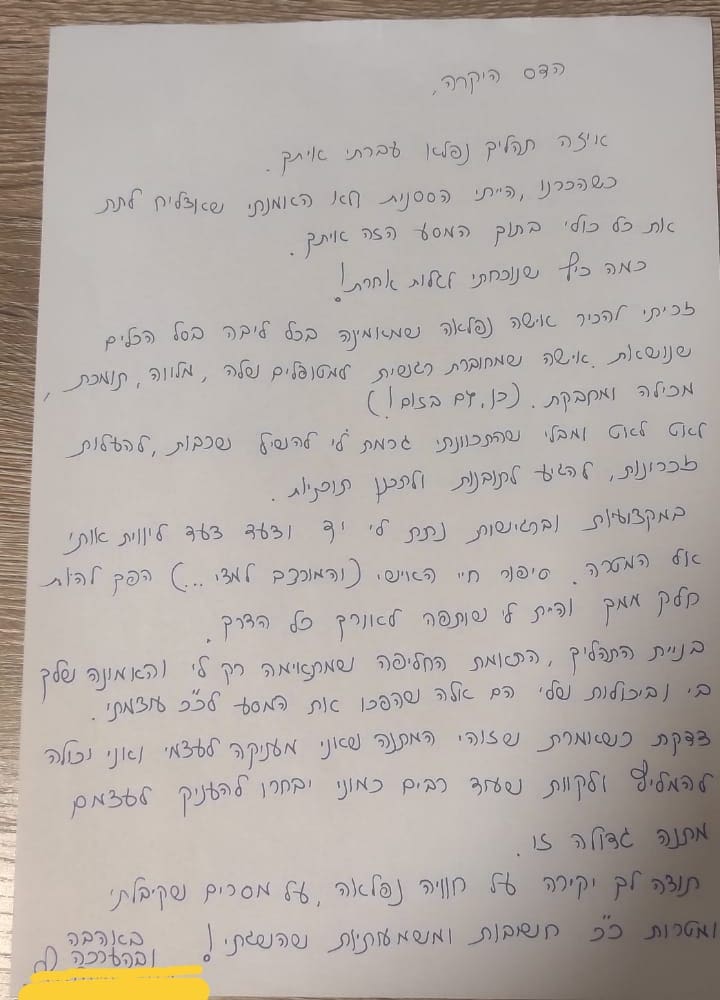 הדס היקרה,
איזה תהליך נפלא עברתי איתך.
כשהכרנו, הייתי הססנית ולא האמנתי שאצליח לתת
את כל כולי בתוך המסע הזה איתך.
כמה כיף שנוכחתי לגלות אחרת!
זכיתי להכיר אישה נפלאה שמאמינה בכל ליבה בסל הכלים
שנושאת. אישה שמחוברת רגשית למטופלים שלה, מלווה, תומכת,
מכילה ומחבקת. (כן, גם בזום!)
לאט לאט ומבלי שהתכוונתי גרמת לי להשיל שכבות, להעלות
זכרונות, להגיע לתובנות ולתכנן תוכניות.
במקצועיות וברגישות נתת לי יד וצעד צעד ליווית אותי
אל המטרה. סיפור חיי האישי (והמורכב למדי...) הפך להיות
חלק ממך והיית לי שותפה לאורך כל הדרך.
בניית התהליך, התאמת החליפה שמתאימה רק לי והאמונה שלך
בי וביכולות שלי הם אלה שהפכו את המסע לכ"כ עוצמתי.
צדקת כשאומרת שזוהי המתנה שאני מעניקה לעצמי ואני יכולה
להמליץ ולקוות שעוד רבים כמוני יבחרו להעניק לעצמם
מתנה גדולה זו.
תודה לך יקירה על חוויה נפלאה, על מסרים שקיבלתי
ומטרות כ"כ חשובות ומשמעותיות שהשגתי!
באהבה
ובהערכה